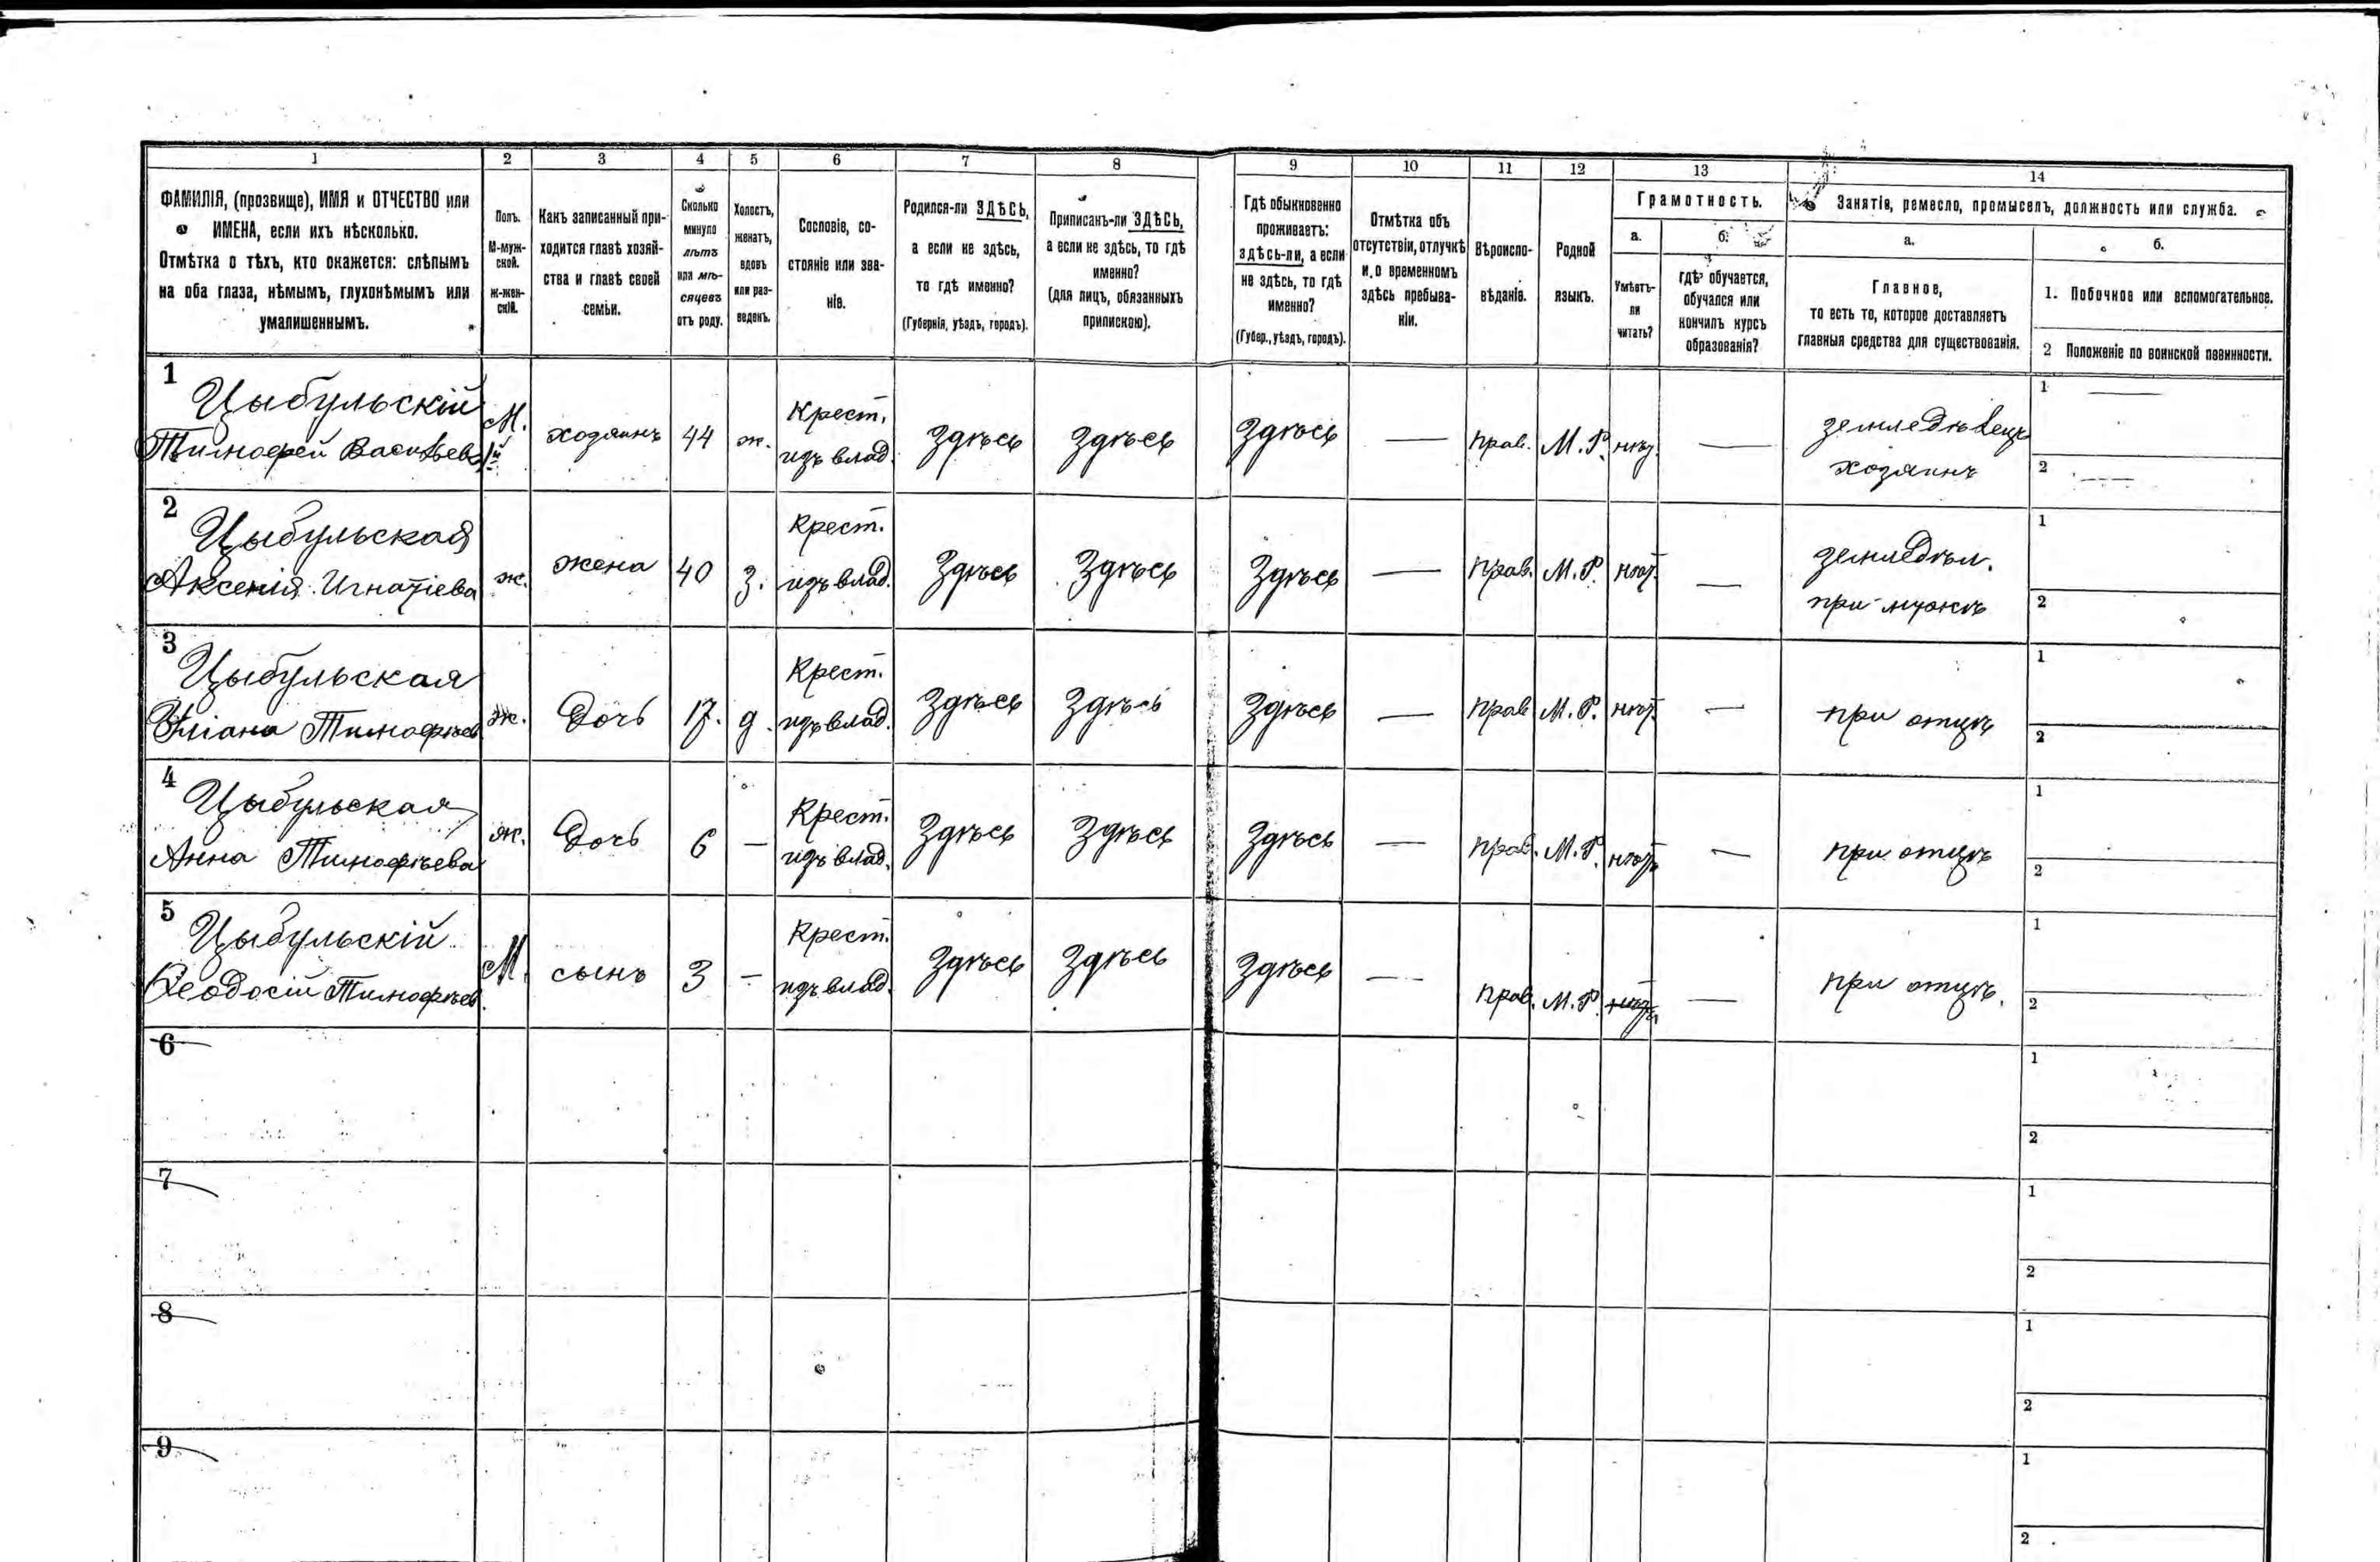 1 2 3 4 5 6 7 8 9 10 11 12 13 14
ФАМИЛІЯ, (прозвище), ИМЯ и ОТЧЕСТВО или
ИМЕНА, если ихъ нѣсколько.
Отмѣтка о тѣхъ, кто окажется: слѣпымъ
на оба глаза, нѣмымъ, глухонѣмымъ или
умалишеннымъ.
Полъ.
М-муж-
ской.
ж-жен-
скій.
Какъ записанный при-
ходится главѣ хозяй-
ства и главѣ своей
семьи.
Сколько
минуло
лѣтъ
или мѣ-
сяцевъ
отъ роду.
Холостъ,
женатъ,
вдовъ
или раз-
веденъ.
Сословіе, со-
стояніе или зва-
ніе.
Родился-ли ЗДѢСЬ,
а если не здѣсь,
то гдѣ именно?
(Губернія, уѣздъ, городъ).
Приписанъ-ли ЗДѢСЬ,
а если не здѣсь, то гдѣ
именно?
(для лицъ, обязанныхъ
припискою).
Гдѣ обыкновенно
проживаетъ:
здѣсь-ли, а если
не здѣсь, то гдѣ
именно?
(Губер., уѣздъ, городъ).
Отмѣтка объ
отсутствіи, отлучкѣ
и о временномъ
здѣсь пребыва-
ніи.
Вѣроиспо-
вѣданіе.
Родной
языкъ.
Грамотность.
а.
Умѣетъ-
ли
читать?
б.
гдѣ обучается,
обучался или
кончилъ курсъ
образованія?
Занятіе, ремесло, промыселъ, должность или служба.
а.
Главное,
то есть то, которое доставляетъ
главныя средства для существованія.
б.
1. Побочное или вспомогательное.
2 Положеніе по воинской повинности.
1 Цыбульскій М. хозяинъ 44 ж. Крест. здѣсь здѣсь здѣсь — прав. М. Р. нѣт. — земледѣлецъ 1 —
Тимофей изъ влад. хозяинъ 2 —
2 Цыбульская ж. жена 40 з. Крест. здѣсь здѣсь здѣсь — прав. М. Р. нѣт. — земледѣл. 1
Аксенія Игнатіева изъ влад. при мужѣ 2
3 Цыбульская ж. дочь 17. д. Крест. здѣсь здѣсь здѣсь — прав. М. Р. нѣт. — при отцѣ 1
Тимофѣев изъ влад. 2
4 Цыбульская ж. дочь 6 — Крест. здѣсь здѣсь здѣсь — прав. М. Р. нѣтъ — при отцѣ 1
Анна Тимофѣева изъ влад. 2
5 Цыбульскій М. сынъ 3 — Крест. здѣсь здѣсь здѣсь — прав. М. Р. — при отцѣ. 1
Ѳеодосій Тимофѣев изъ влад. 2
6 1
2
7 1
2
8 1
2
9 1
2